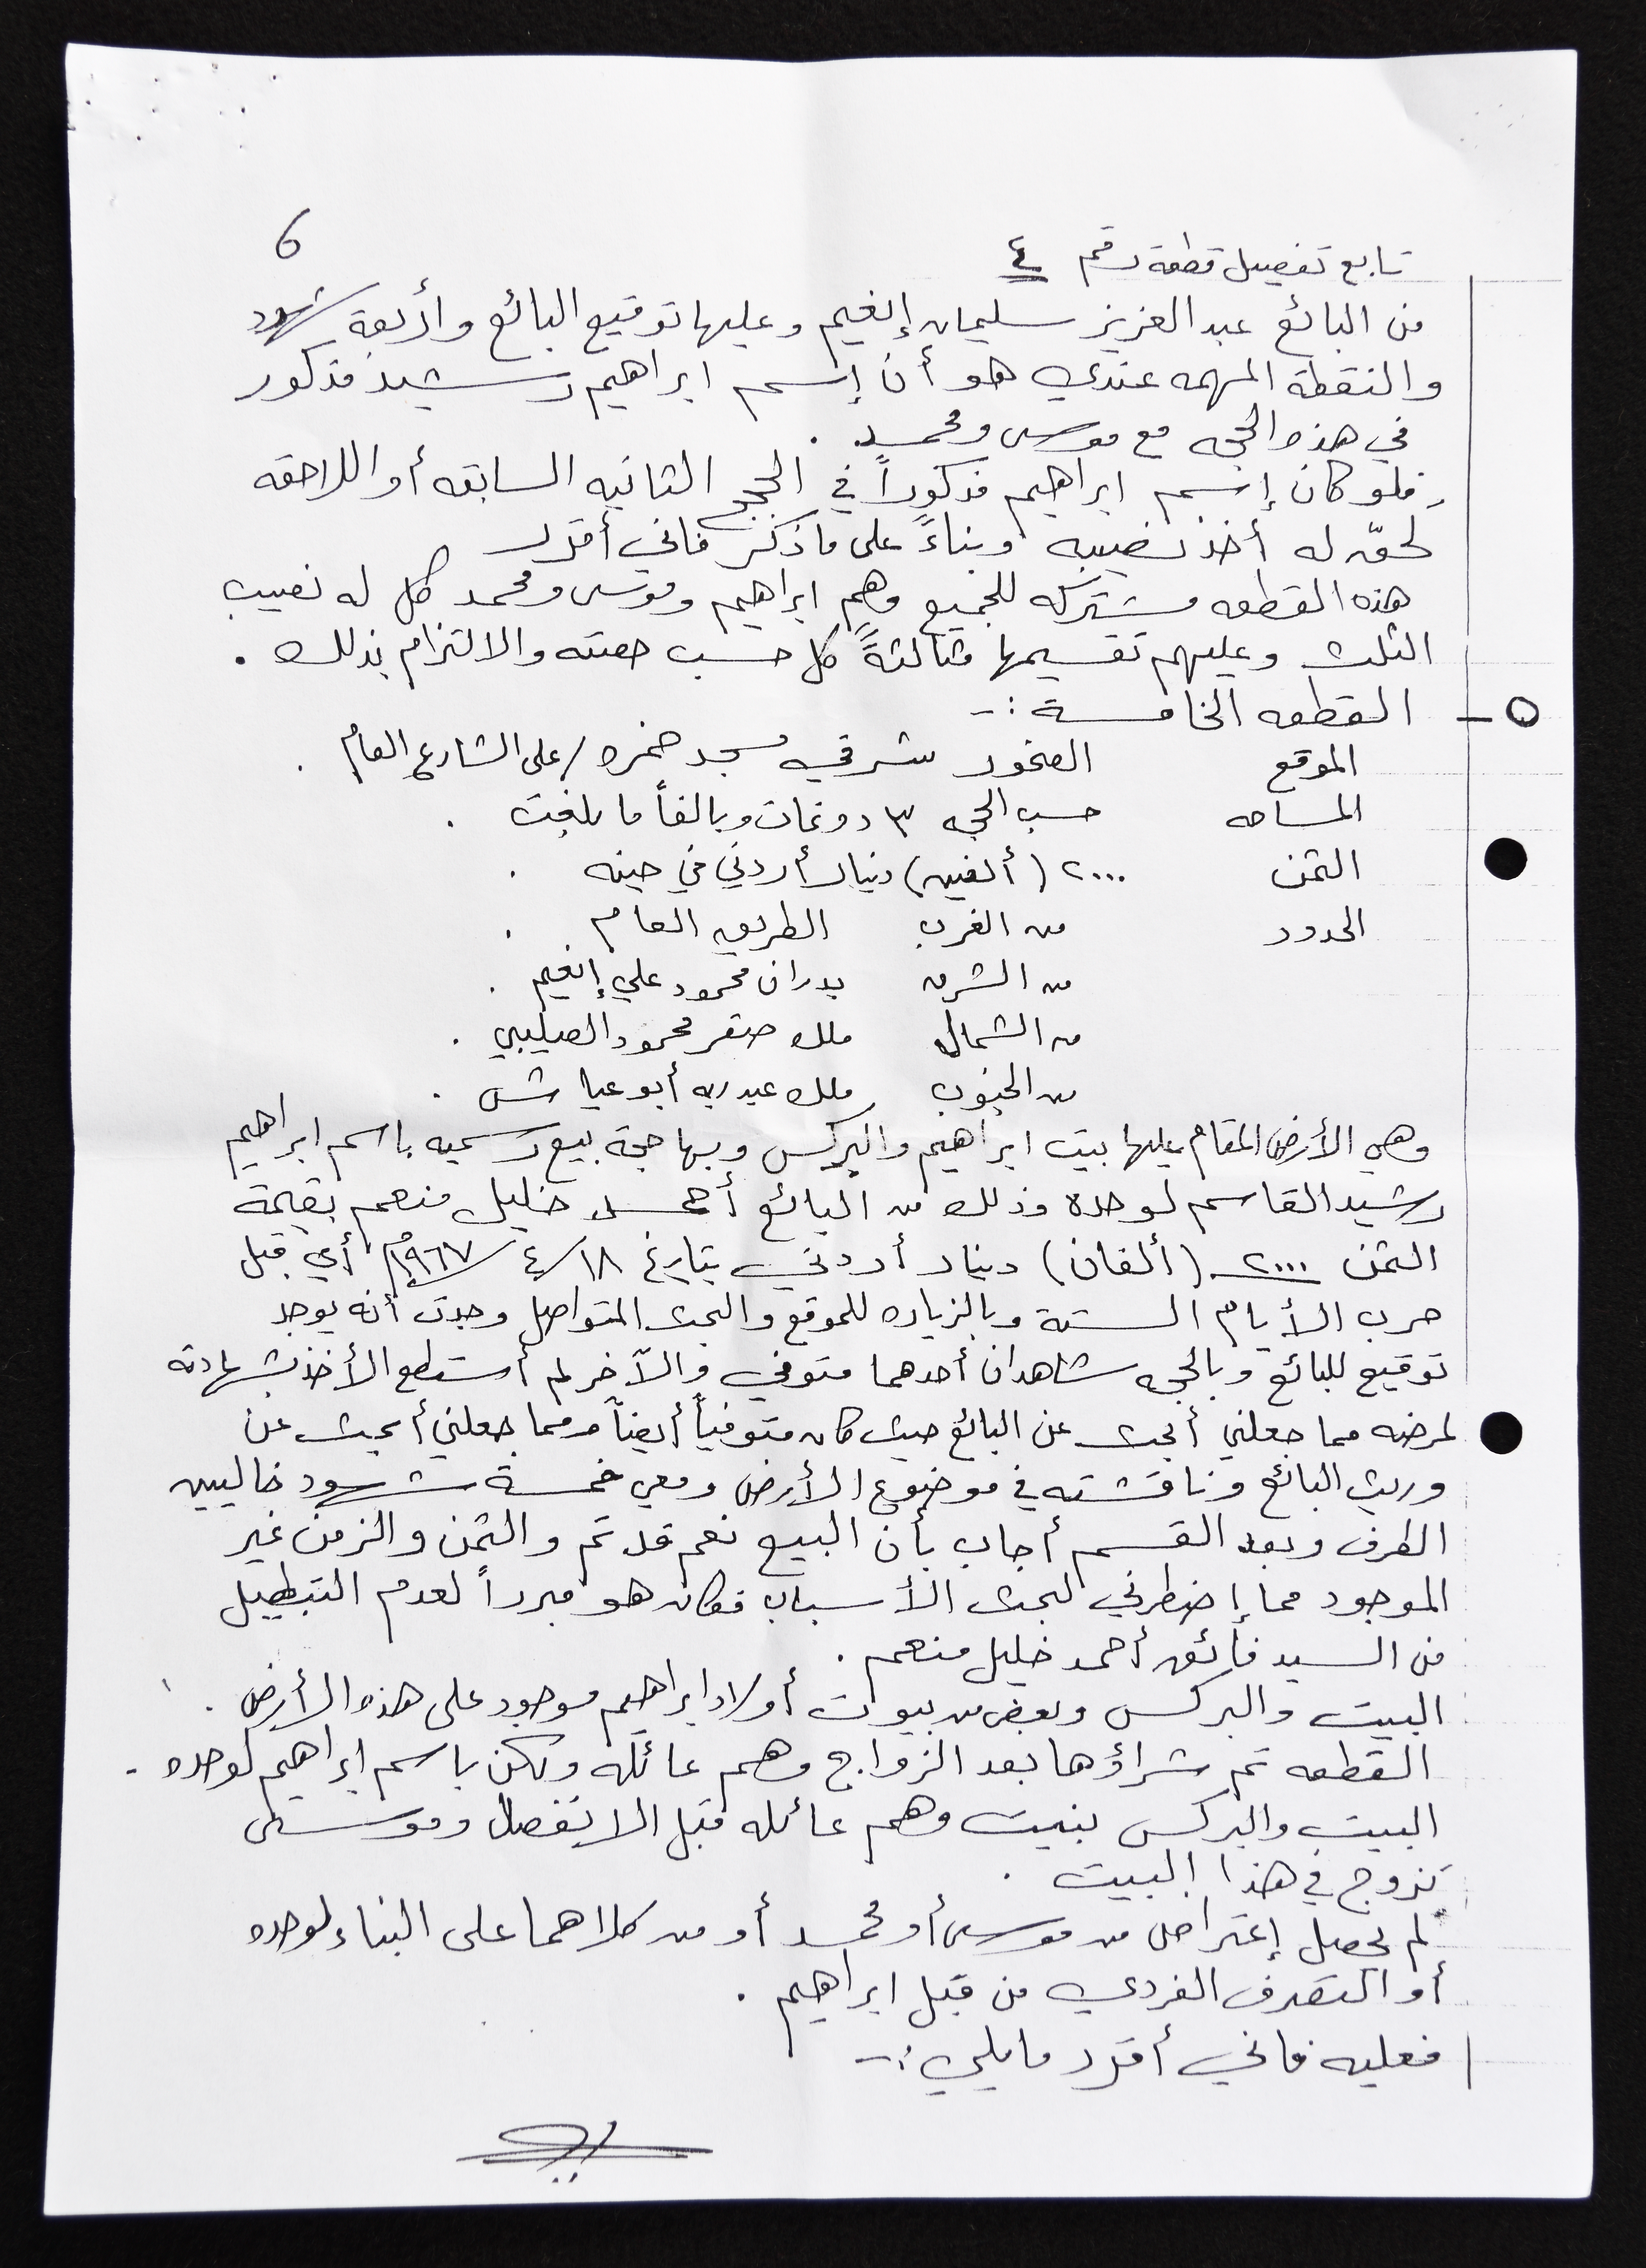 6
تابع تفصيل قطعة رقم ٤
من البائع عبد العزيز سليمان إنعيم وعليها توقيع البائع وأربعة شهود
والنقطة المهمه عندي هو أن إسم ابراهيم رشيد مذكور
في هذه الحجه مع موسى ومحمد .
فلو كان إسم ابراهيم مذكوراً في الحجج الثانيه السابقه أو اللاحقه
لحقّ له أخذ نصيبه وبناءً على ما ذكر فاني أقرر
هذه القطعه مشتركه للجميع وهم ابراهيم وموسى ومحمد كل له نصيب
الثلث وعليهم تقسيمها مثالثةً كل حسب حصته والالتزام بذلك .
٥ - القطعه الخامسة :-
الموقع الصخور شرقي مسجد ضمره / على الشارع العام .
المساحه حسب الحجه ٣ دونمات وبالغاً ما بلغت .
الثمن ٢٠٠٠ (ألفين) دينار أردني في حينه .
الحدود من الغرب الطريق العام .
من الشرق بدران محمود علي إنعيم .
من الشمال ملك صقر محمود الصليبي .
من الجنوب ملك عبد ربه أبو عياش .
وهي الأرض المقام عليها بيت ابراهيم والبركس وبها حجة بيع رسميه باسم ابراهيم
رشيد القاسم لوحده وذلك من البائع أحمد خليل منعم بقيمة
الثمن ٢٠٠٠ (ألفان) دينار أردني بتاريخ ١٨/٤/١٩٦٧م أي قبل
حرب الأيام الستة وبالزياره للموقع والبحث المتواصل وجدت أنه يوجد
توقيع للبائع وبالحجه شاهدان أحدهما متوفي والآخر لم أستطع الأخذ بشهادته
لمرضه مما جعلني أبحث عن البائع حيث كان متوفياً أيضاً ومما جعلني أبحث عن
وريث البائع وناقشته في موضوع الأرض ومعي خمسة شهود خاليين
الطرف وبعد القسم أجاب بأن البيع نعم قد تم والثمن والزمن غير
الموجود مما إضطرني لبحث الأسباب فكان هو مبرراً لعدم التبطيل
من السيد فائق أحمد خليل منعم .
البيت والبركس وبعض من بيوت أولاد ابراهيم موجود على هذه الأرض .
القطعه تم شراؤها بعد الزواج وهم عائله ولكن باسم إبراهيم لوحده .
البيت والبركس بنيت وهم عائله قبل الانفصال وموسى
تزوج في هذا البيت .
لم يحصل إعتراض من موسى أو محمد أو من كلاهما على البناء لوحده
أو التصرف الفردي من قبل ابراهيم .
فعليه فاني أقرر ما يلي :-